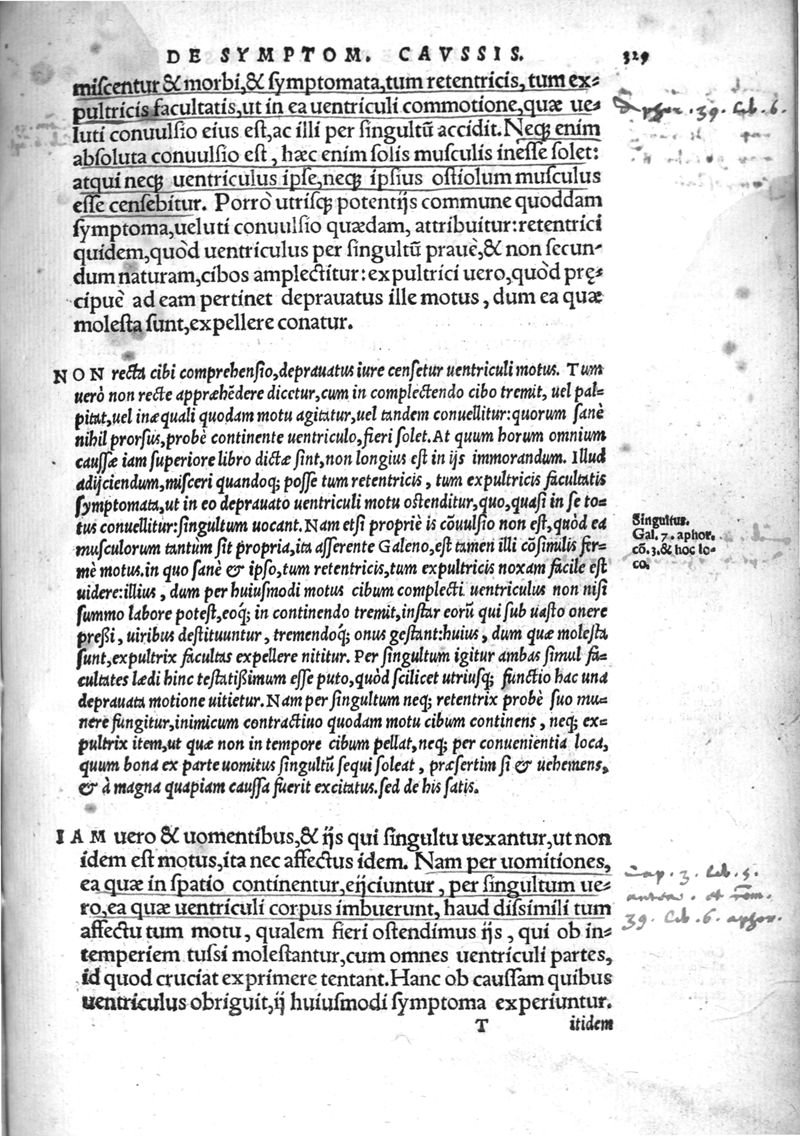 DE SYMPTOM. CAVSSIS. 329
miscentur & morbi,& symptomata,tum retentricis, tum ex=
pultricis facultatis,ut in ea uentriculi commotione,quæ ue=
luti conuulsio eius est,ac illi per singultũ accidit. Neq; enim
absoluta conuulsio est, hæc enim solis musculis inesse solet:
atqui neq; uentriculus ipse,neq; ipsius ostiolum musculus
esse censebitur. Porrò utrisq; potentijs commune quoddam
symptoma,ueluti conuulsio quædam, attribuitur:retentrici
quidem,quòd uentriculus per singultũ prauè,& non secun-
dum naturam,cibos amplectitur: expultrici uero,quòd prę=
cipuè ad eam pertinet deprauatus ille motus, dum ea quæ
molesta sunt,expellere conatur.
NON recta cibi comprehensio,deprauatus iure censetur uentriculi motus. Tum
uerò non recte appræhẽdere dicetur,cum in complectendo cibo tremit, uel pal=
pitat,uel inæquali quodam motu agitatur,uel tandem conuellitur:quorum sanè
nihil prorsus,probè continente uentriculo,fieri solet.At quum horum omnium
caussæ iam superiore libro dictæ sint,non longius est in ijs immorandum. Illud
adijciendum,misceri quandoq; posse tum retentricis, tum expultricis facultatis
symptomata,ut in eo deprauato uentriculi motu ostenditur,quo,quasi in se to=
tus conuellitur:singultum uocant. Nam etsi propriè is cõuulsio non est,quòd ea
musculorum tantum sit propria,ita asserente Galeno,est tamen illi cõsimilis fer=
mè motus.in quo sanè & ipso,tum retentricis,tum expultricis noxam facile est
uidere:illius, dum per huiusmodi motus cibum complecti uentriculus non nisi
summo labore potest,eoq; in continendo tremit,instar eorũ qui sub uasto onere
preßi, uiribus destituuntur, tremendoq; onus gestant:huius, dum quæ molesta
sunt,expultrix facultas expellere nititur. Per singultum igitur ambas simul fa=
cultates lædi hinc testatißimum esse puto,quòd scilicet utriusq; functio hac una
deprauata motione uitietur. Nam per singultum neq; retentrix probè suo mu=
nere fungitur,inimicum contractiuo quodam motu cibum continens, neq; ex=
pultrix item,ut quæ non in tempore cibum pellat,neq; per conuenientia loca,
quum bona ex parte uomitus singultũ sequi soleat, præsertim si & uehemens,
& à magna quapiam caussa fuerit excitatus.sed de his satis.
IAM uero & uomentibus,& ijs qui singultu uexantur,ut non
idem est motus,ita nec affectus idem. Nam per uomitiones,
ea quæ in spatio continentur,eijciuntur, per singultum ue=
ro,ea quæ uentriculi corpus imbuerunt, haud dissimili tum
affectu tum motu, qualem fieri ostendimus ijs, qui ob in=
temperiem tussi molestantur,cum omnes uentriculi partes,
id quod cruciat exprimere tentant.Hanc ob caussam quibus
uentriculus obriguit,ij huiusmodi symptoma experiuntur.
T itidem
Aphor. 39. Lib. 6.
Singultus.
Gal. 7. aphor.
cõ. 3. & hoc lo=
co.
Cap. 3. Lib. 5.
39. Lib. 6. aphor.